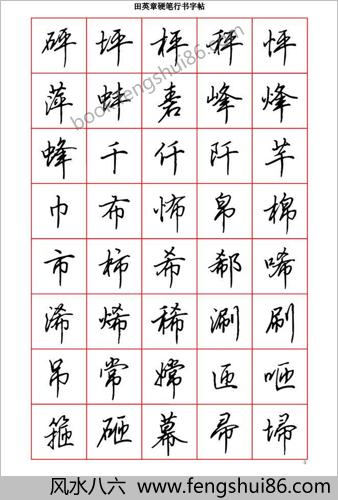 田英章硬笔行书字帖
砰 坪 枰 秤 怦
萍 蚌 嘉 峰 烽
蜂 千 仟 阡 芊
巾 布 怖 帛 棉
市 柿 希 郗 唏
浠 烯 稀 涮 刷
吊 常 嫦 匝 咂
箍 砸 幕 帚 埽
book.fengshui86.com
风水八六 www.fengshui86.com